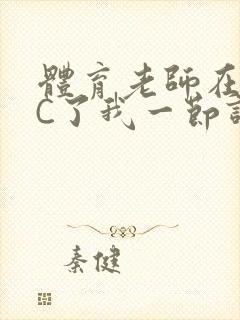 體育老師在
C了我一節
秦健